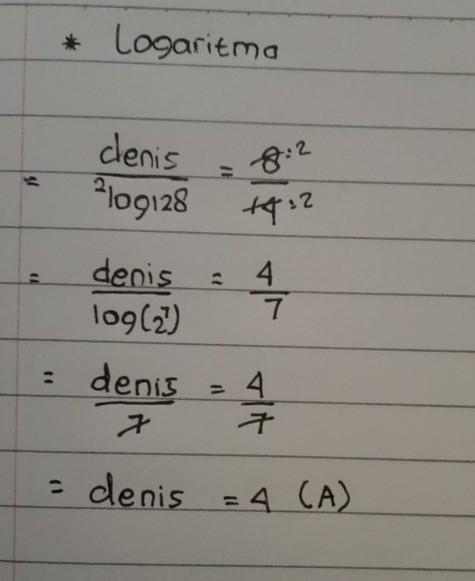 * Logaritma
= denis/²log128 = 8:2/14:2
= denis/log(2⁷) = 4/7
= denis/7 = 4/7
= denis = 4 (A)